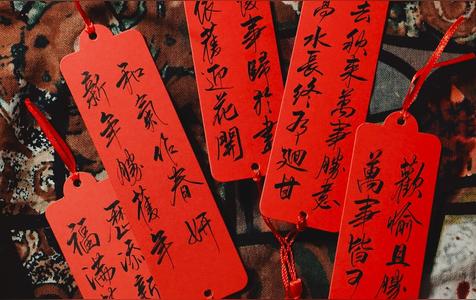 和氣作春妍
新年勝舊年
歷添新
福滿
事歸於
依舊迎花開
去秋來萬事勝意
高水長終有迴甘
歡愉且勝
萬事皆可